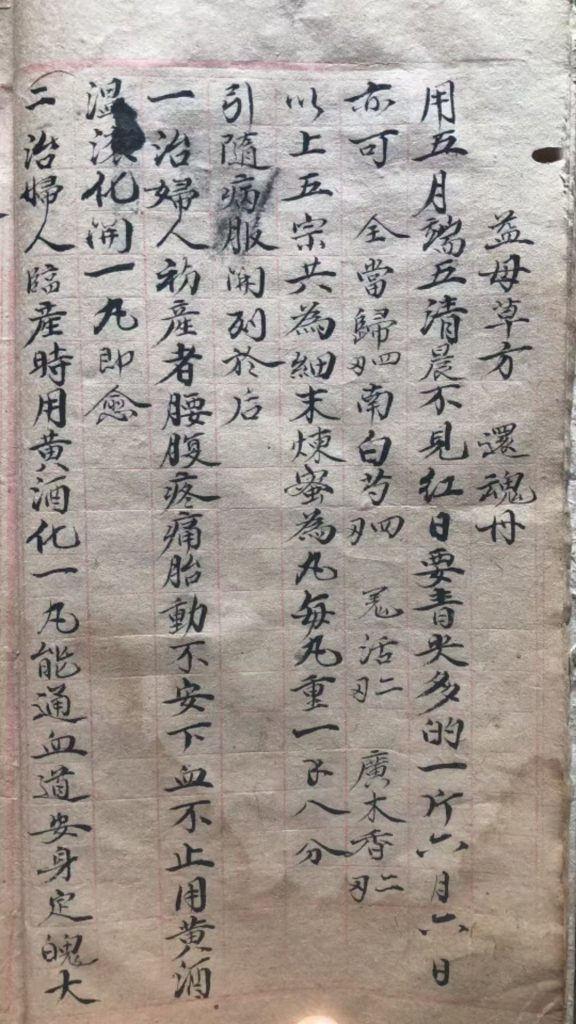 益母草方 還魂丹
用五月端五清晨不見紅日要青尖多的一斤六月六日
亦可 全當歸四刄 南白芍四刄 羌活二刄 廣木香二刄
以上五宗共為細末煉蜜為丸每丸重一子八分
引隨病服開列於后
一治婦人初產者腰腹疼痛胎動不安下血不止用黃酒
溫滾化開一丸即愈
二治婦人臨產時用黃酒化一丸能通血道安身定魄大